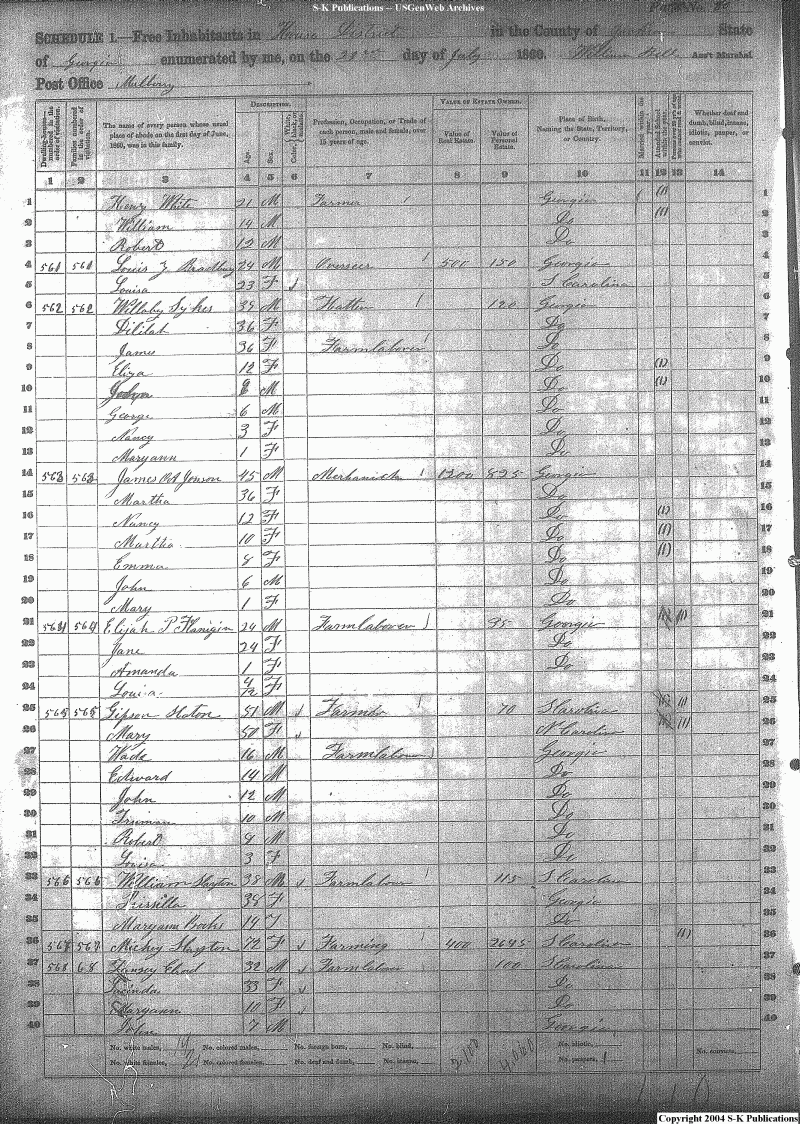 S-K Publications -- USGenWeb Archives
Page No.
SCHEDULE 1.—Free Inhabitants in House District in the County of Jackson State
of Georgia enumerated by me, on the 28 day of July 1860. William Hill Ass't Marshal
Post Office Mulberry
Dwelling-houses—numbered in the order of visitation.
Families numbered in the order of visitation.
The name of every person whose usual place of abode on the first day of June, 1860, was in this family.
DESCRIPTION.
Age.
Sex.
Color, White, black, or mulatto.
Profession, Occupation, or Trade of each person, male and female, over 15 years of age.
VALUE OF ESTATE OWNED.
Value of Real Estate.
Value of Personal Estate.
Place of Birth, Naming the State, Territory, or Country.
Married within the year.
Attended School within the year.
Persons over 20 y'rs of age who cannot read & write.
Whether deaf and dumb, blind, insane, idiotic, pauper, or convict.
1 2 3 4 5 6 7 8 9 10 11 12 13 14
1 Henry White 21 M Farmer Georgia (1) 1
2 William 14 M Do (1) 2
3 Robert 12 M Do 3
4 561 561 Louis Z Bradbury 24 M Overseer 500 150 Georgia 4
5 Louisa 23 F S Carolina 5
6 562 562 Willaby Sykes 35 M Hatter 120 Georgia 6
7 Dililah 36 F Do 7
8 James 36 F Farmlaborer Do 8
9 Eliza 12 F Do (1) 9
10 M Do (1) 10
11 George 6 M Do 11
12 Nancy 3 F Do 12
13 Maryann 1 F Do 13
14 563 563 James Jonson 45 M Mechanick 1200 825 Georgia 14
15 Martha 36 F Do 15
16 Nancy 12 F Do (1) 16
17 Martha 10 F Do (1) 17
18 Emma 8 F Do (1) 18
19 John 6 M Do 19
20 Mary 1 F Do 20
21 564 564 Elijah P Flanigin 24 M Farmlaborer 95 Georgia (1) 21
22 Jane 24 F Do 22
23 Amanda 1 F Do 23
24 Louisa 4/12 F 24
25 565 565 Gipson Slaton 51 M Farmer 70 S Carolina 25
26 Mary 50 F N Carolina (1) 26
27 Wade 16 M Farmlabour Georgia 27
28 Edward 14 M Do 28
29 John 12 M Do 29
30 Truman 10 M Do 30
31 Robert 9 M Do 31
32 Louisa 3 F Do 32
33 566 566 William Slayton 38 M Farmlabour 115 S Carolina 33
34 Prissilla 38 F Georgia 34
35 Maryann 19 F Do 35
36 567 567 Mickey Slayton 72 F Farming 400 2645 S Carolina (1) 36
37 568 68 32 M Farmlabour 100 S Carolina 37
38 Lucinda 33 F Do 38
39 Maryann 10 F Do 39
40 John 7 M Georgia 40
No. white males, 19 No. colored males, No. foreign born, No. blind, 2,100 4,060 No. idiotic, No. convicts,
No. white females, 21 No. colored females, No. deaf and dumb, No. insane, No. paupers,
Copyright 2004 S-K Publications